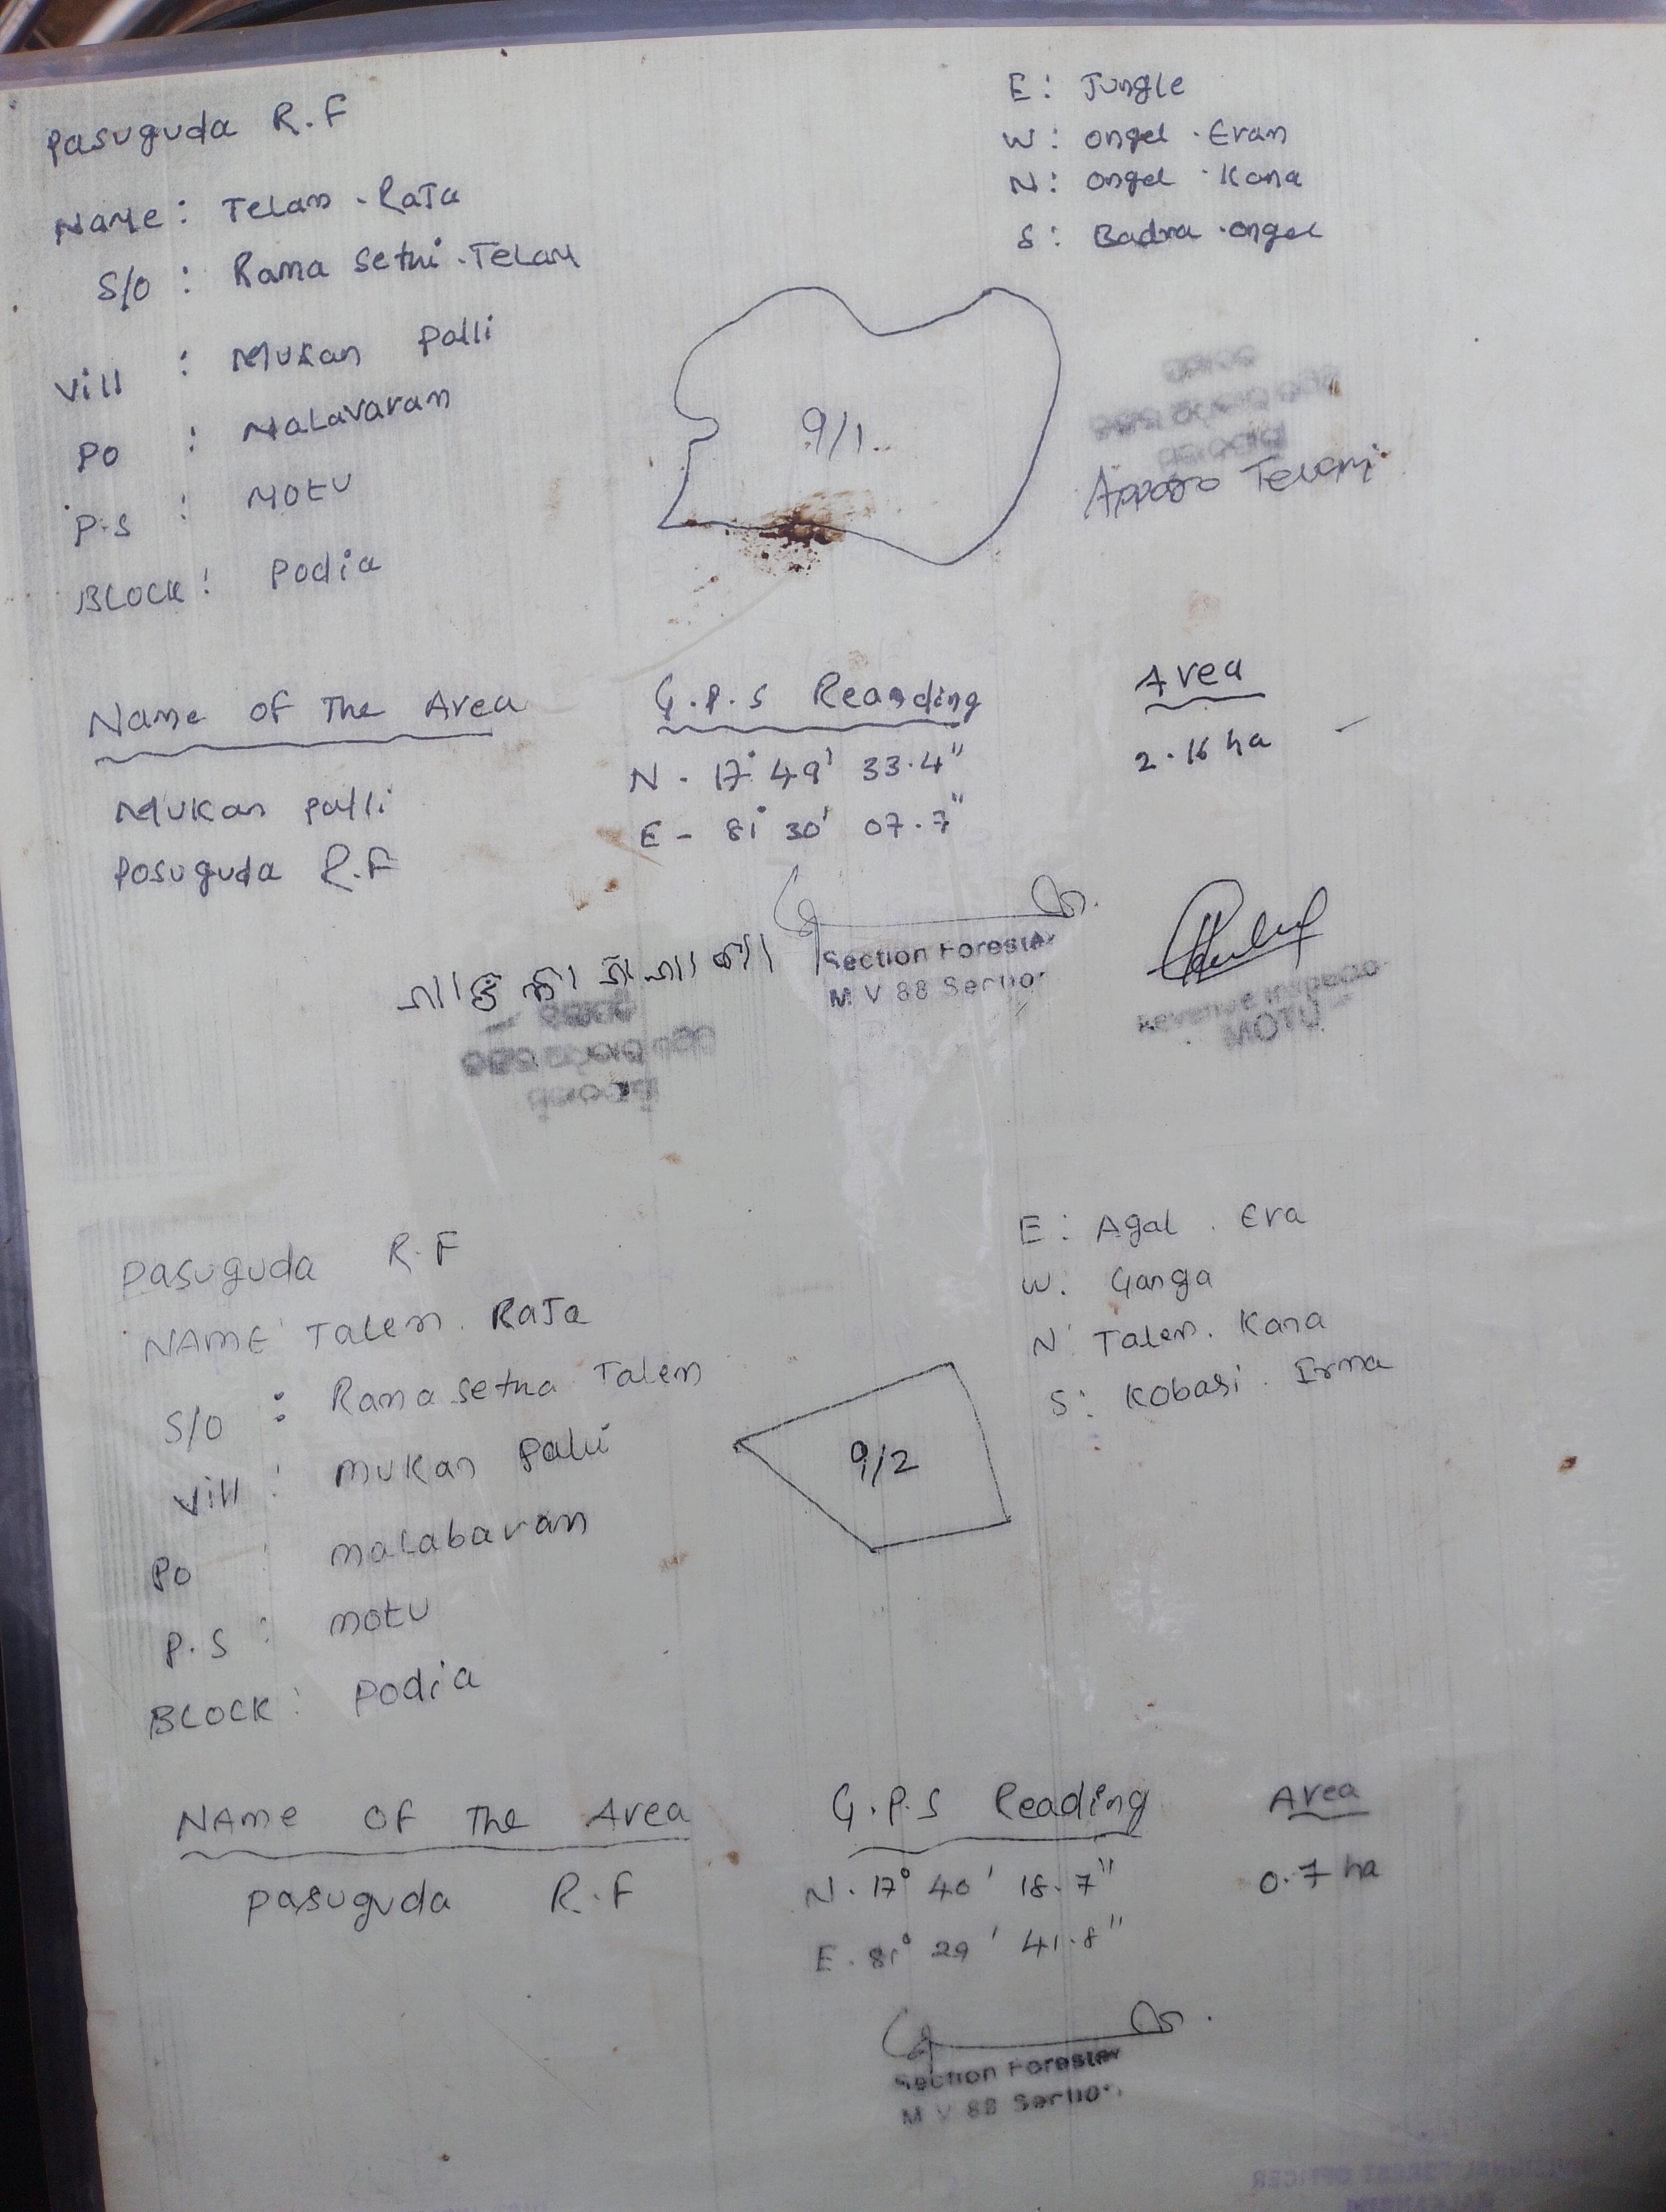 Pasuguda R.F
Name: Telam. Raja
S/O : Rama Sethi. Telam
Vill : Mukan Palli
PO : Malavaram
P.S : Motu
BLOCK: Podia
E: Jungle
W: ongel. Evan
N: ongel. Kana
S: Badra. ongel
9/1
Telam
Name OF The Area
Mukan Palli
Posuguda R.F
G.P.S Reanding
N. 17° 49' 33.4"
E - 81° 30' 07.7"
Area
2.16 ha
Section Forester
M V 88 Section
Revenue Inspector
MOTU
Pasuguda R.F
NAME Talem. Raja
S/O : Rama Setha Talem
Vill : Mukan Palli
PO : malabaram
P.S : motu
BLOCK: Podia
E: Agal. Era
W. Ganga
N: Talem. Kana
S: Kobasi. Irma
9/2
NAme OF The Area
Pasuguda R.F
G.P.S Reading
N. 17° 40' 18.7"
E. 81° 29' 41.8"
Area
0.7 ha
Section Forester
M V 88 Section